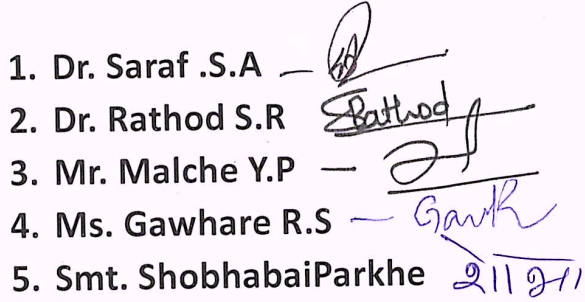 1. Dr. Saraf .S.A –
2. Dr. Rathod S.R Rathod
3. Mr. Malche Y.P –
4. Ms. Gawhare R.S –
5. Smt. ShobhabaiParkhe